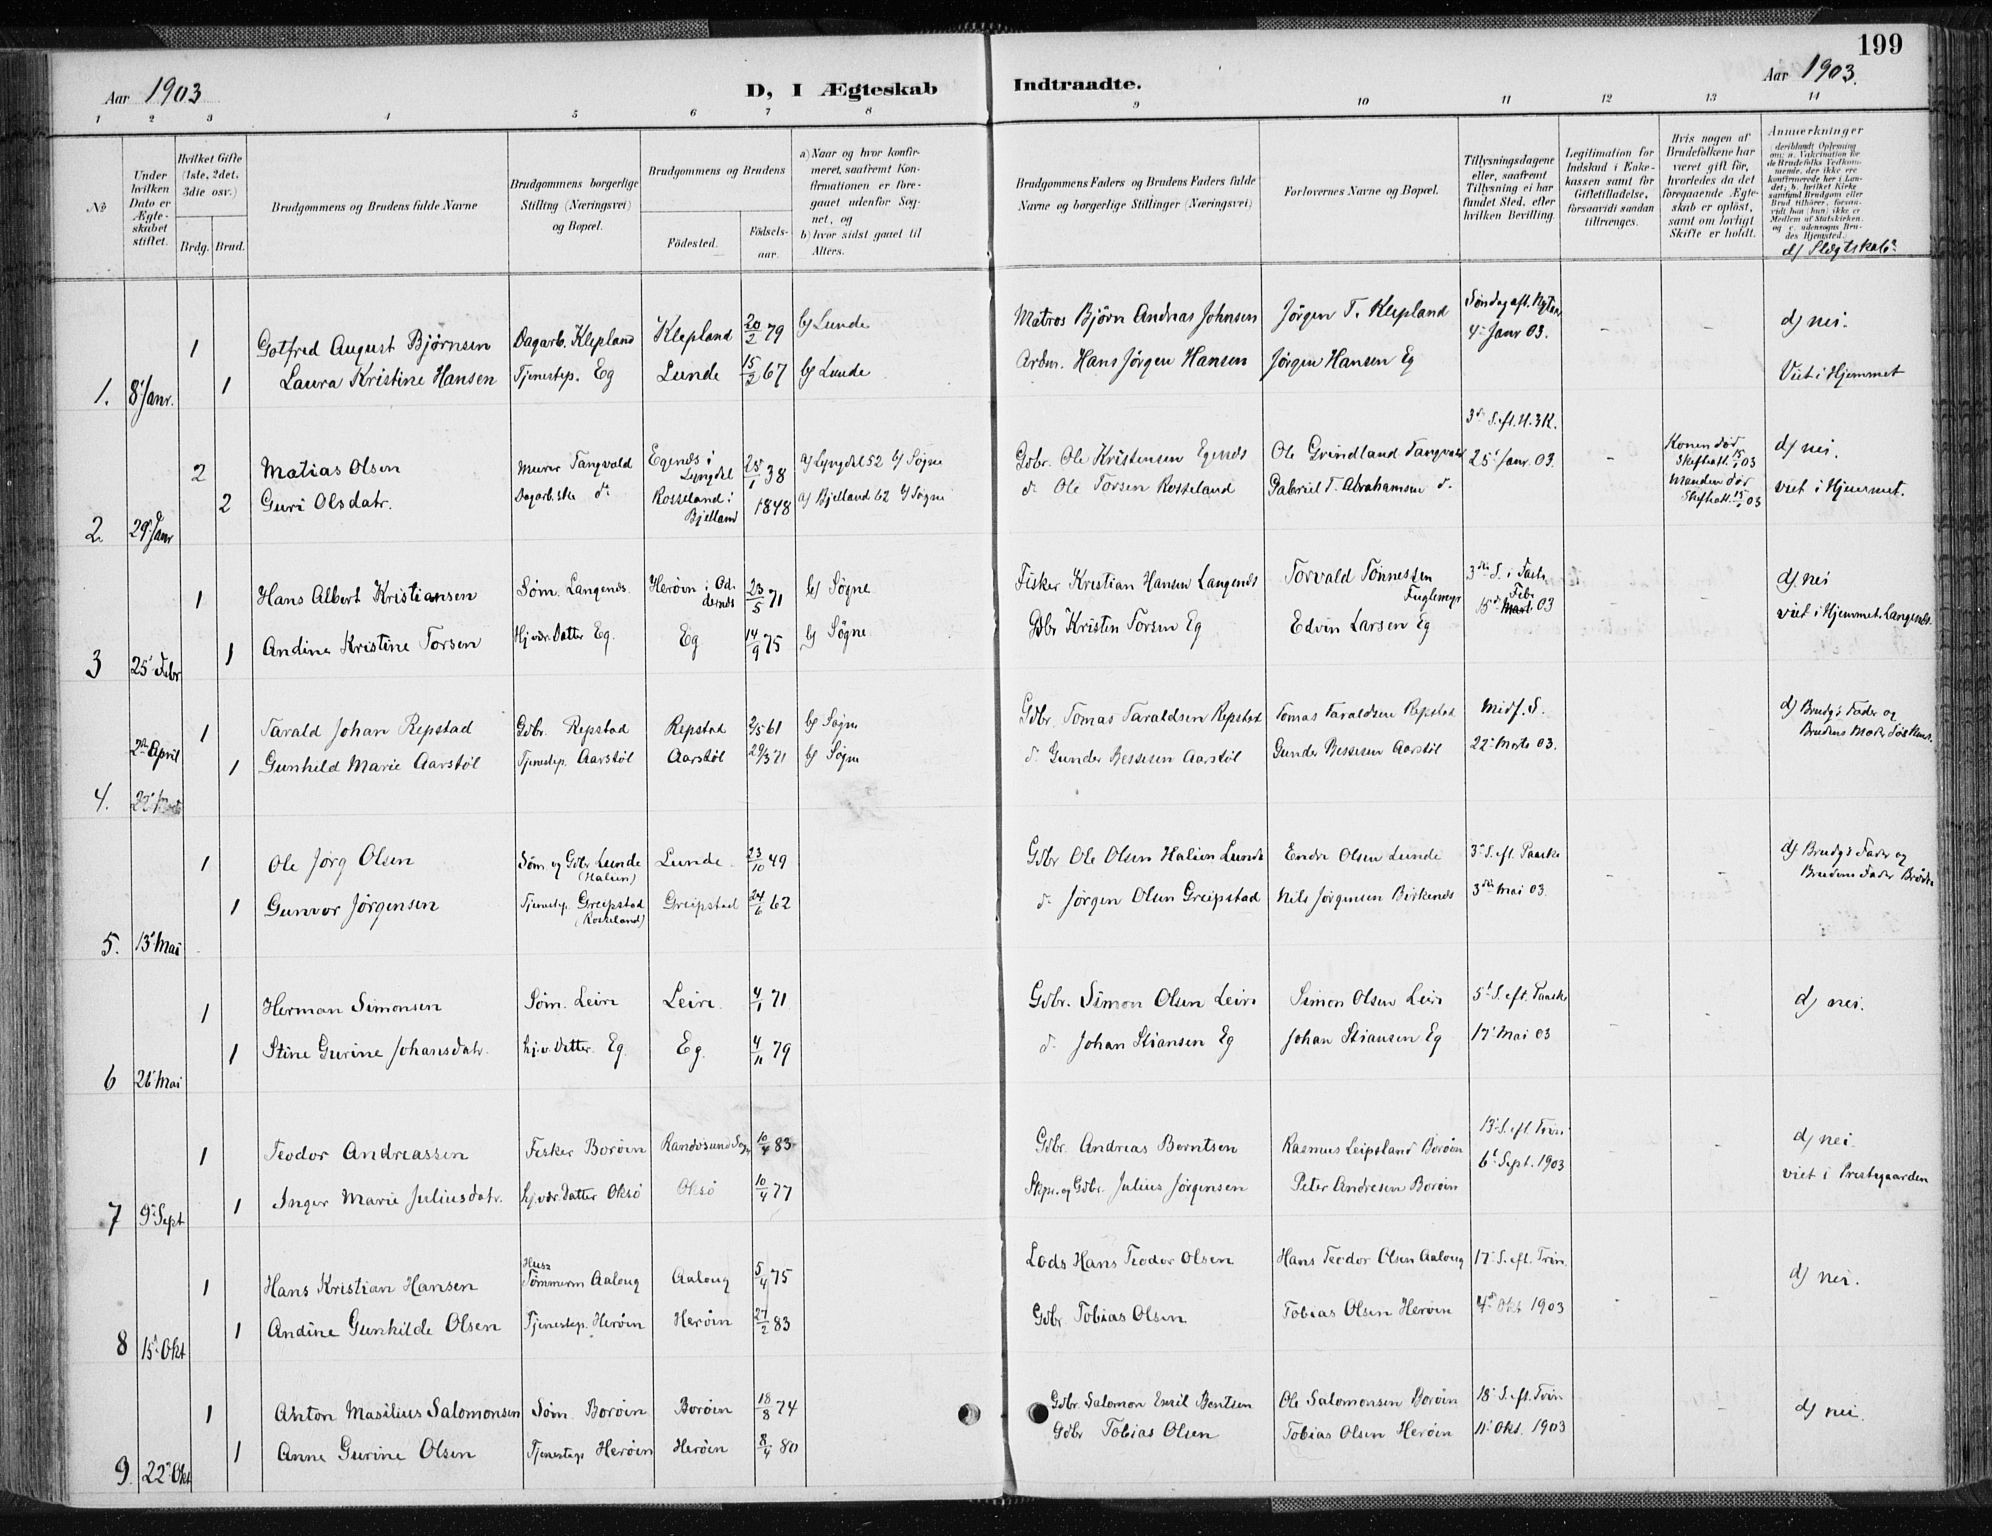 199
Aar 1903 D, I Ægteskab Indtraadte. Aar 1903.
1 2 3 4 5 6 7 8 9 10 11 12 13 14
No
Under hvilken Dato er Ægteskabet stiftet.
Hvilket Gifte (1ste, 2det, 3die osv.)
Brdg. Brud.
Brudgommens og Brudens fulde Navne
Brudgommens borgerlige Stilling (Næringsvei) og Bopæl.
Brudgommens og Brudens
Födested. Födsels-aar.
a) Naar og hvor konfirmeret, saafremt Konfirmationen er foregaaet udenfor Sognet, og
b) hvor sidst gaaet til Alters.
Brudgommens Faders og Brudens Faders fulde Navne og borgerlige Stillinger (Næringsvei)
Forlovernes Navne og Bopæl.
Tillysningsdagene eller, saafremt Tillysning ei har fundet Sted, efter hvilken Bevilling
Legitimation for Indskud i Enkekassen samt for Giftetilladelse, forsaavidt saadan tiltrænges.
Hvis nogen af Brudefolkene har været gift før, hvorledes da det foregaaende Ægteskab er opløst, samt om lovligt Skifte er holdt.
Anmerkninger
d) Slægtskab?
1. 8' Janr. 1 Gotfred August Bjørnsen Dagarb. Klepland Klepland 20/2 79 b) Lunde Matros Bjørn Andreas Johnsen Jörgen T. Klepland Söndag aft. Nytaar 4' Janr 03. - - d) nei.
1 Laura Kristine Hansen Tjenestep. Eg Lunde 15/2 67 b) Lunde Arbm. Hans Jørgen Hansen Jörgen Hansen Eg Viet i Hjemmet
2. 29' Janr 2 Matias Olsen Murer Tangvald Egenes i Lyngdal 25/1 38 a) Lyngdal 52 b) Søgne Gdbr. Ole Kristensen Egenes Ole Grindland Tangvald 3' S. eft. H. 3 K. 25' Janr. 03. - Konen död Skifteatt. 15/1 03 d) nei.
2 Guri Olsdatr. Dagarb.ske do Rosseland i Bjelland 1848 a) Bjelland 62 b) Søgne do Ole Torsen Rosseland Gabriel T. Abrahamsen do. Manden död Skifteatt. 15/1 03 viet i Hjemmet.
3 25' Febr 1 Hans Albert Kristiansen Søm. Langenes. Herøin i Oddernes 23/5 71 b) Søgne Fisker Kristian Hansen Langenes Torvald Tönnessen Fuglemyr 3die S. i Faste 15' Mart. Feb. 03 - - d) nei
1 Andine Kristine Torsen Hj.vær. Datter Eg. Eg 14/9 75 b) Søgne Gdbr Kristen Torsen Eg Edvin Larsen Eg viet i Hjemmet. Langenes.
4. 2' April 1 Tarald Johan Repstad Gdbr. Repstad Repstad 2/5 61 b) Søgne Gdbr. Tomas Taraldsen Repstad Tomas Taraldsen Repstad Midf. S. d) Brudg's Fader og
22' Marts 1 Gunhild Marie Aarstøl Tjenestep. Aarstøl Aarstøl 29/3 71 b) Søgne do Gunder Bessesen Aarstöl Gunder Bessesen Aarstöl 22' Marts 03. Brudens Moder Söskend.
5. 13' Mai 1 Ole Jørg Olsen Söm. og Gdbr Lunde (Halsen) Lunde 23/10 49 Gdbr Ole Olsen Halsen Lunde Endre Olsen Lunde 3' S. eft. Paaske d) Brudg's Fader og
1 Gunvor Jørgensen Tjenestep. Greipstad (Rosseland) Greipstad 24/6 62 do Jørgen Olsen Greipstad Nils Jørgensen Birkenes 3die Mai 03. Brudens Fader Brödre
6 26' Mai 1 Herman Simonsen Söm. Leire Leire. 4/1 71 Gdbr. Simon Olsen Leire Simon Olsen Leire 5' S. eft. Paaske d) nei.
1 Stine Gurine Johansdatr. hj.v. Datter. Eg. Eg. 4/11 79 do Johan Stiansen Eg Johan Stiansen Eg 17' Mai 03
7 9' Sept 1 Teodor Andreassen Fisker Borøin Randøsund Sogn 10/4 83 Gdbr. Andreas Berntsen Rasmus Leipsland Borøin 13' S. eft. Trin. d) nei
1 Inger Marie Juliusdatr. hj.vær. Datter Oksö Oksö 10/4 77 Skpr. og Gdbr. Julius Jørgensen Peter Andresen Borøin 6' Sept. 1903 viet i Prestegaarden
8 15' Okt 1 Hans Kristian Hansen Hus Tömmerm Aaloug Aaloug 5/4 75 Lods Hans Teodor Olsen Hans Teodor Olsen Aaloug 17' S. eft. Trin. d) nei.
1 Andine Gunhilde Olsen Tjenestep. Herøin Herøin 27/2 83 Gdbr. Tobias Olsen Tobias Olsen Herøin 4' Okt 1903
9. 22' Okt 1 Anton Masilius Salomonsen Søm. Borøin Borøin 18/8 74 Gdbr. Salomon Emil Bentsen Ole Salomonsen Borøin 18' S. eft. Trin d) nei.
1 Anne Gurine Olsen Tjenestep. Herøin Herøin 8/4 80 Gdbr Tobias Olsen Tobias Olsen Herøin 11' Okt. 1903